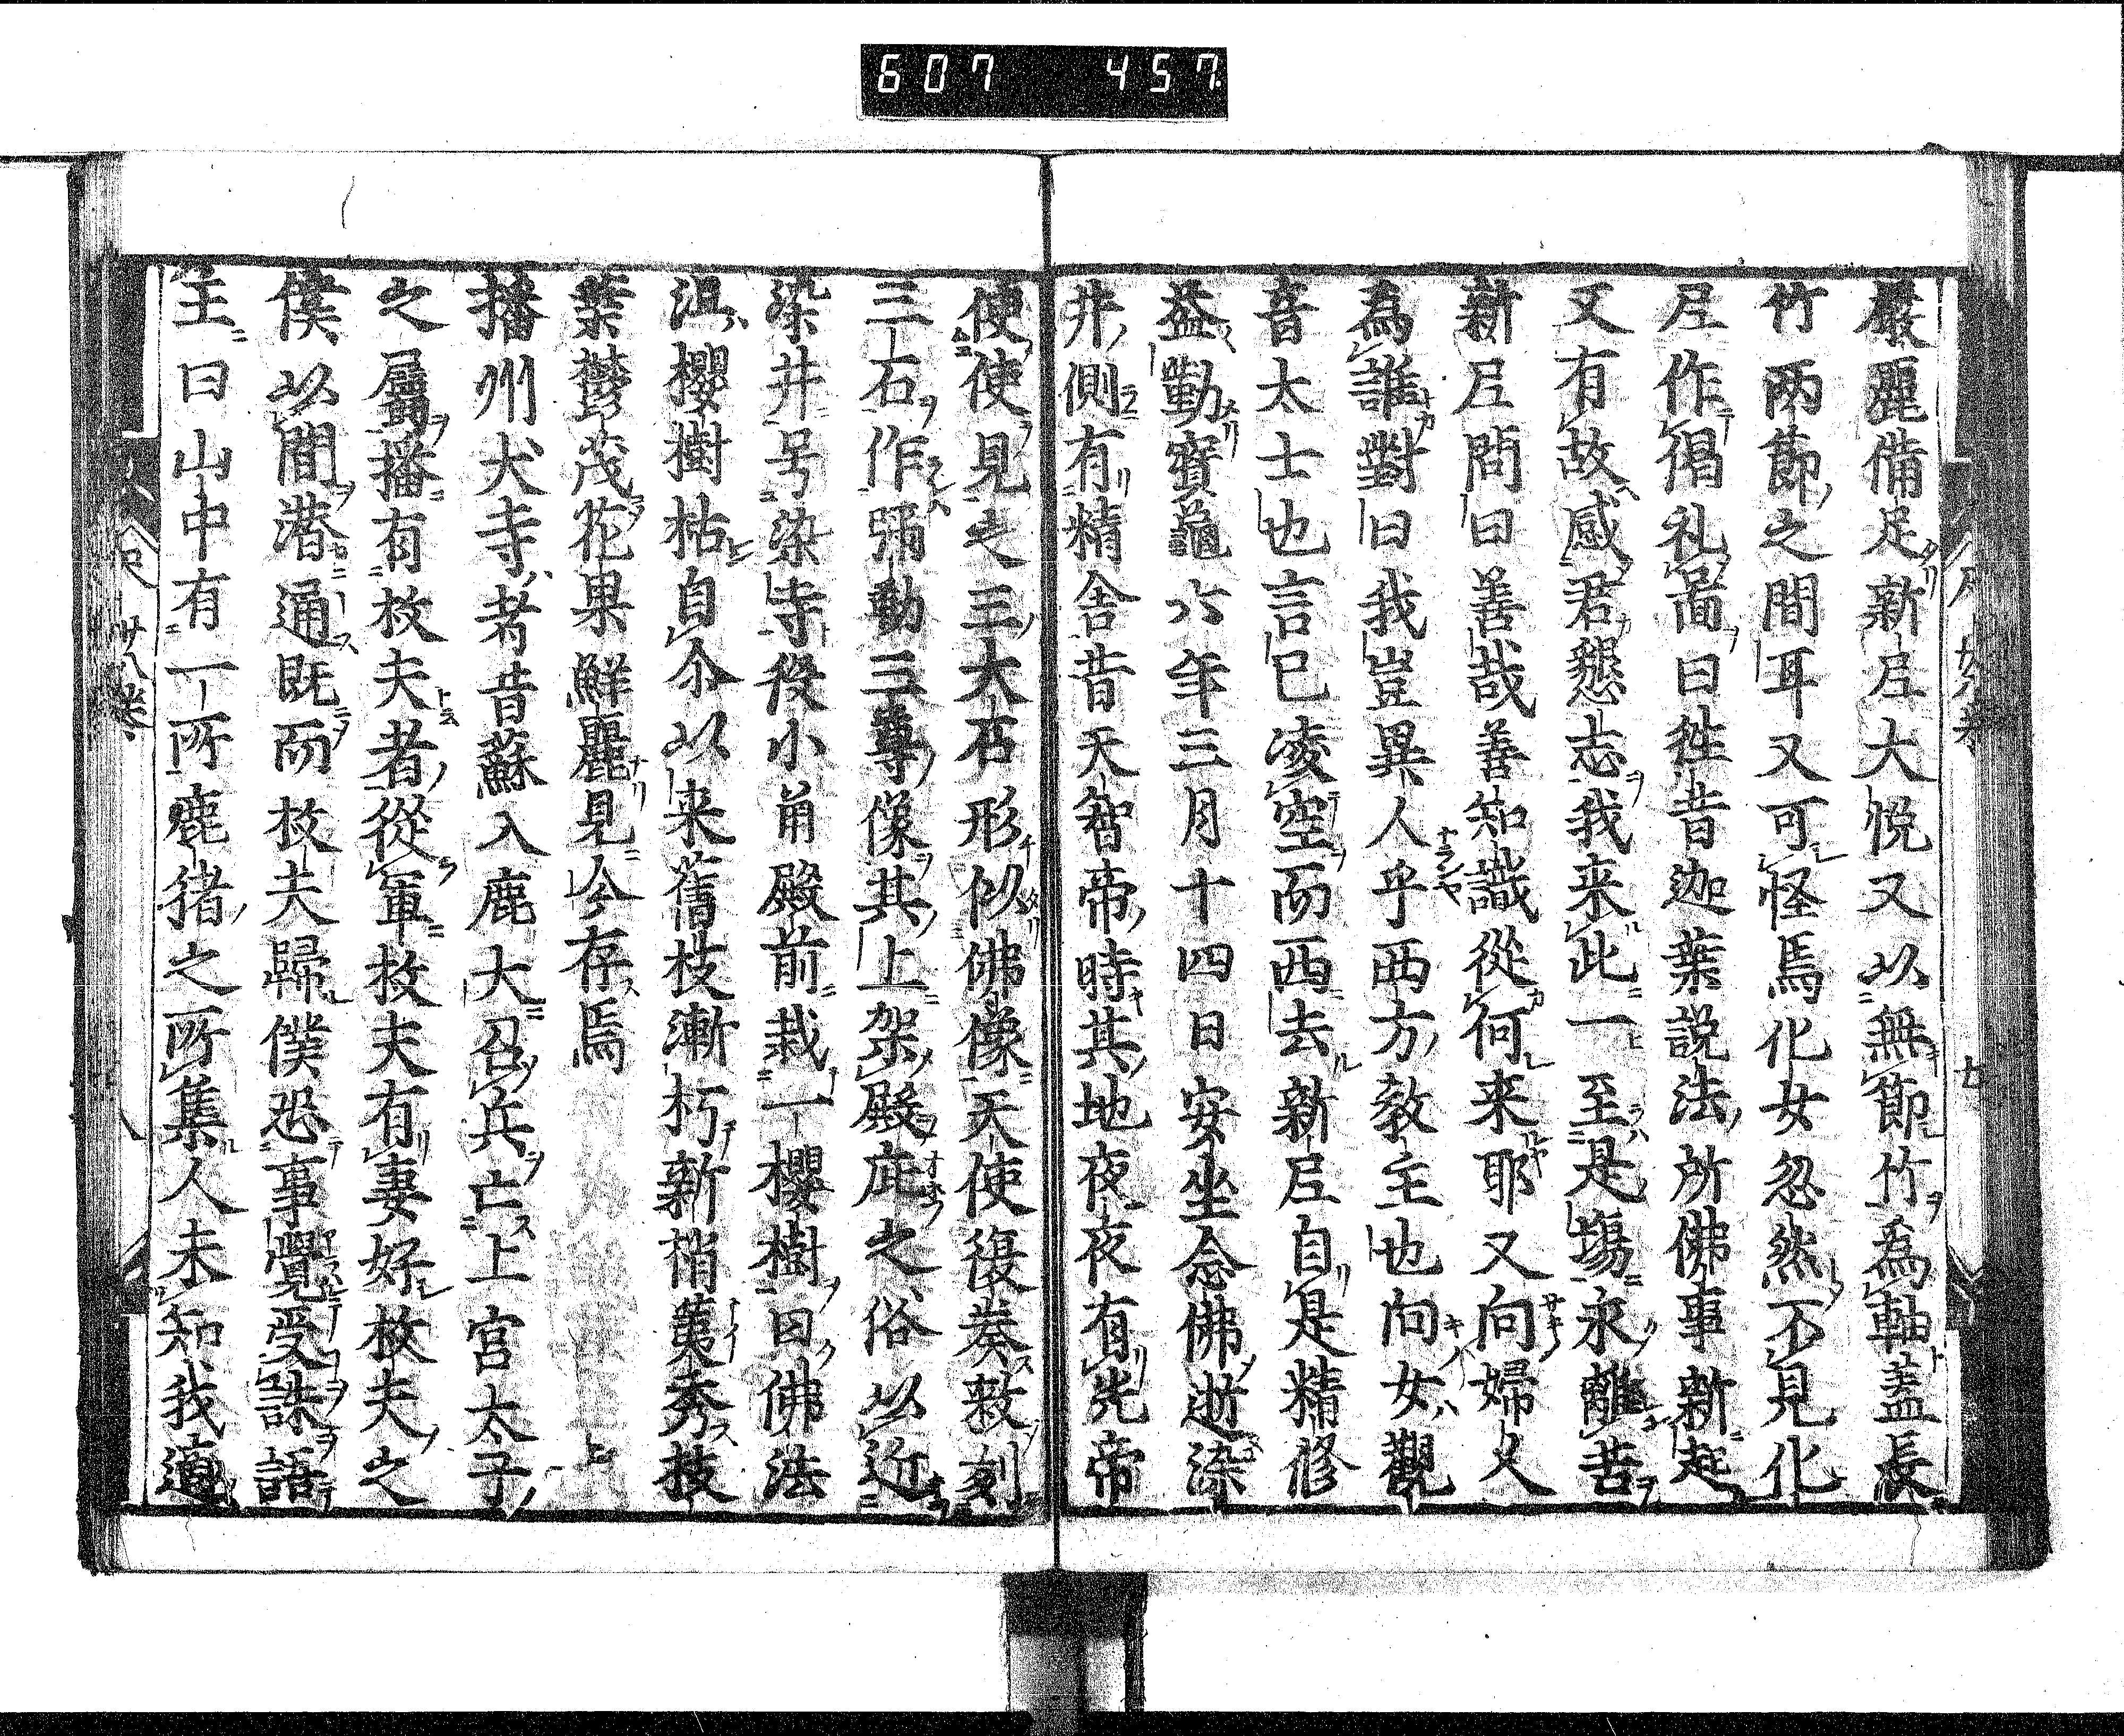 607 457
嚴麗備足新尼大悅又以無節竹為軸蓋長
竹兩節之間耳又可怪焉化女忽然不見化
尼作偈礼啚曰徃昔迦葉說法所佛事新起
又有故感君懇志我来此一至是場永離苦
新尼問曰善哉善知識從何来耶又向婦人
為誰對曰我豈異人乎西方教主也向女觀
音太士也言已凌空而西去新尼自是精修
益勤寶龜六年三月十四日安坐念佛逝染
井側有精舍昔天智帝時其地夜夜有光帝
使使見之三大石形似佛像天使復奏敕刻
三石作彌勒三尊像其上架殿庇之俗以近
染井号染寺役小甬殿前栽一櫻樹曰佛法
沮櫻樹枯自尒以来舊枝漸朽新梢荑秀枝
葉欝茂花果鮮麗見今存焉
播州犬寺者昔蘇入鹿大召兵亡上宮太子
之屬播有枚夫者從軍枚夫有妻好枚夫之
僕以間潜通既而枚夫歸僕恐事覺受誅語
主曰山中有一所鹿猪之所集人未知我適
釈 廿八巻